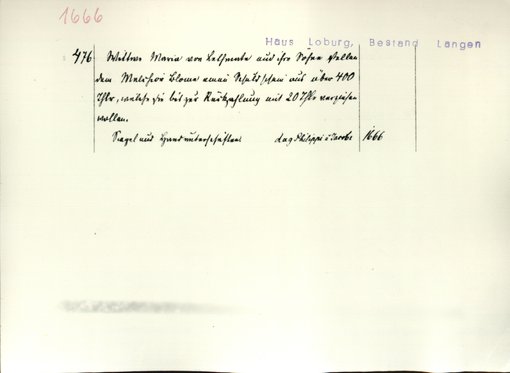 1666
Haus Loburg, Bestand Langen
476 Witwe Maria von Letmate und ihre Söhne stellen
dem Melchior Blome einen Schuldschein aus über 400
Thlr, welche sie bis zur Rückzahlung mit 20 Thlr verzinsen
wollen.
Siegel und Handunterschriften. d.ag Philippi u Jacobi 1666